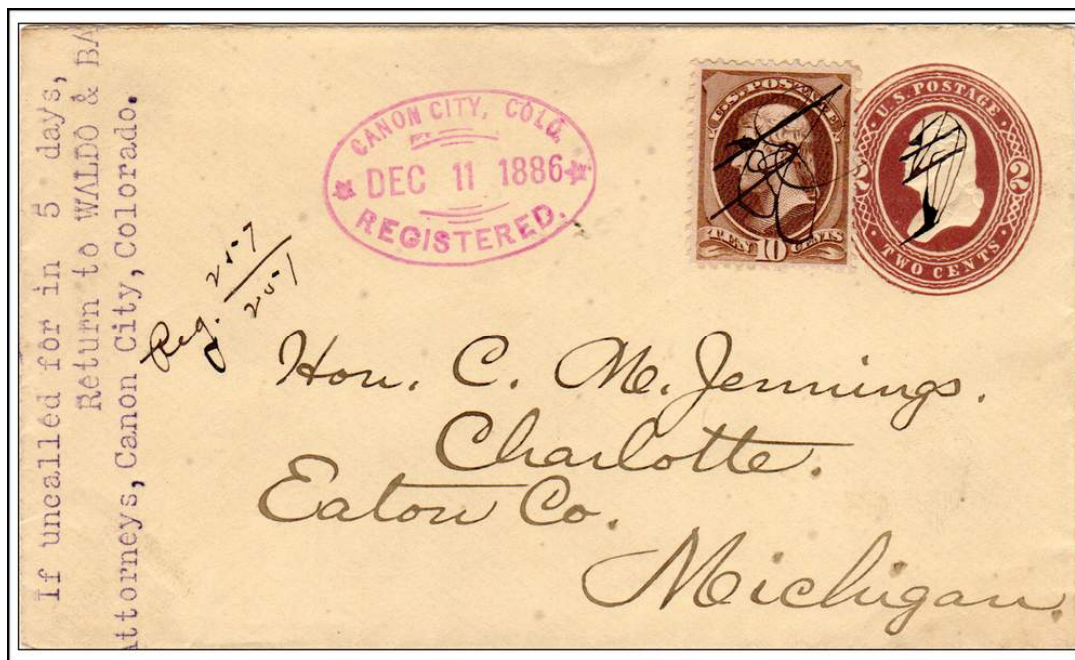 If uncalled for in 5 days,
Return to WALDO & BA
Attorneys, Canon City, Colorado.
CANON CITY, COLO.
DEC 11 1886
REGISTERED.
U.S. POSTAGE
TEN 10 CENTS
U.S. POSTAGE
2 2
TWO CENTS
Reg. 257
251
Hon. C. M. Jennings.
Charlotte.
Eaton Co.
Michigan.